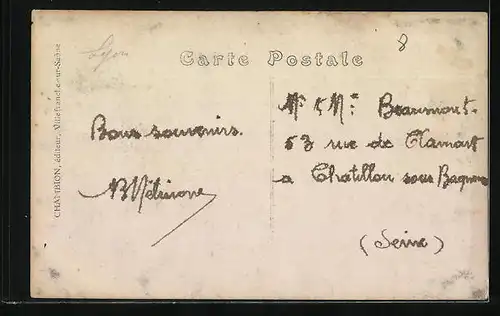 Lyon
8
Carte Postale
CHAMBION, éditeur, Villefranche-sur-Saône
Bons souvenirs.
Mr & Me Beaumont.
63 rue de Clamart
a Chatillon sous Bagneux
(Seine)